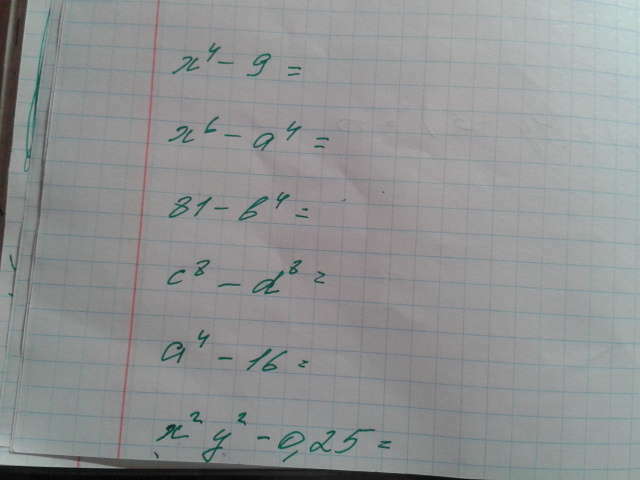 x⁴ - 9 =
x⁶ - a⁴ =
81 - b⁴ =
c⁸ - d⁸ =
a⁴ - 16 =
x² y² - 0,25 =